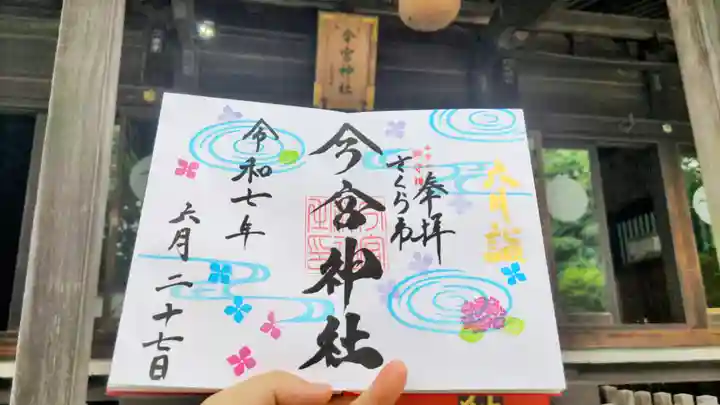 今宮神社
六月詣
奉拝
さくら市
今宮神社
令和七年
六月二十七日